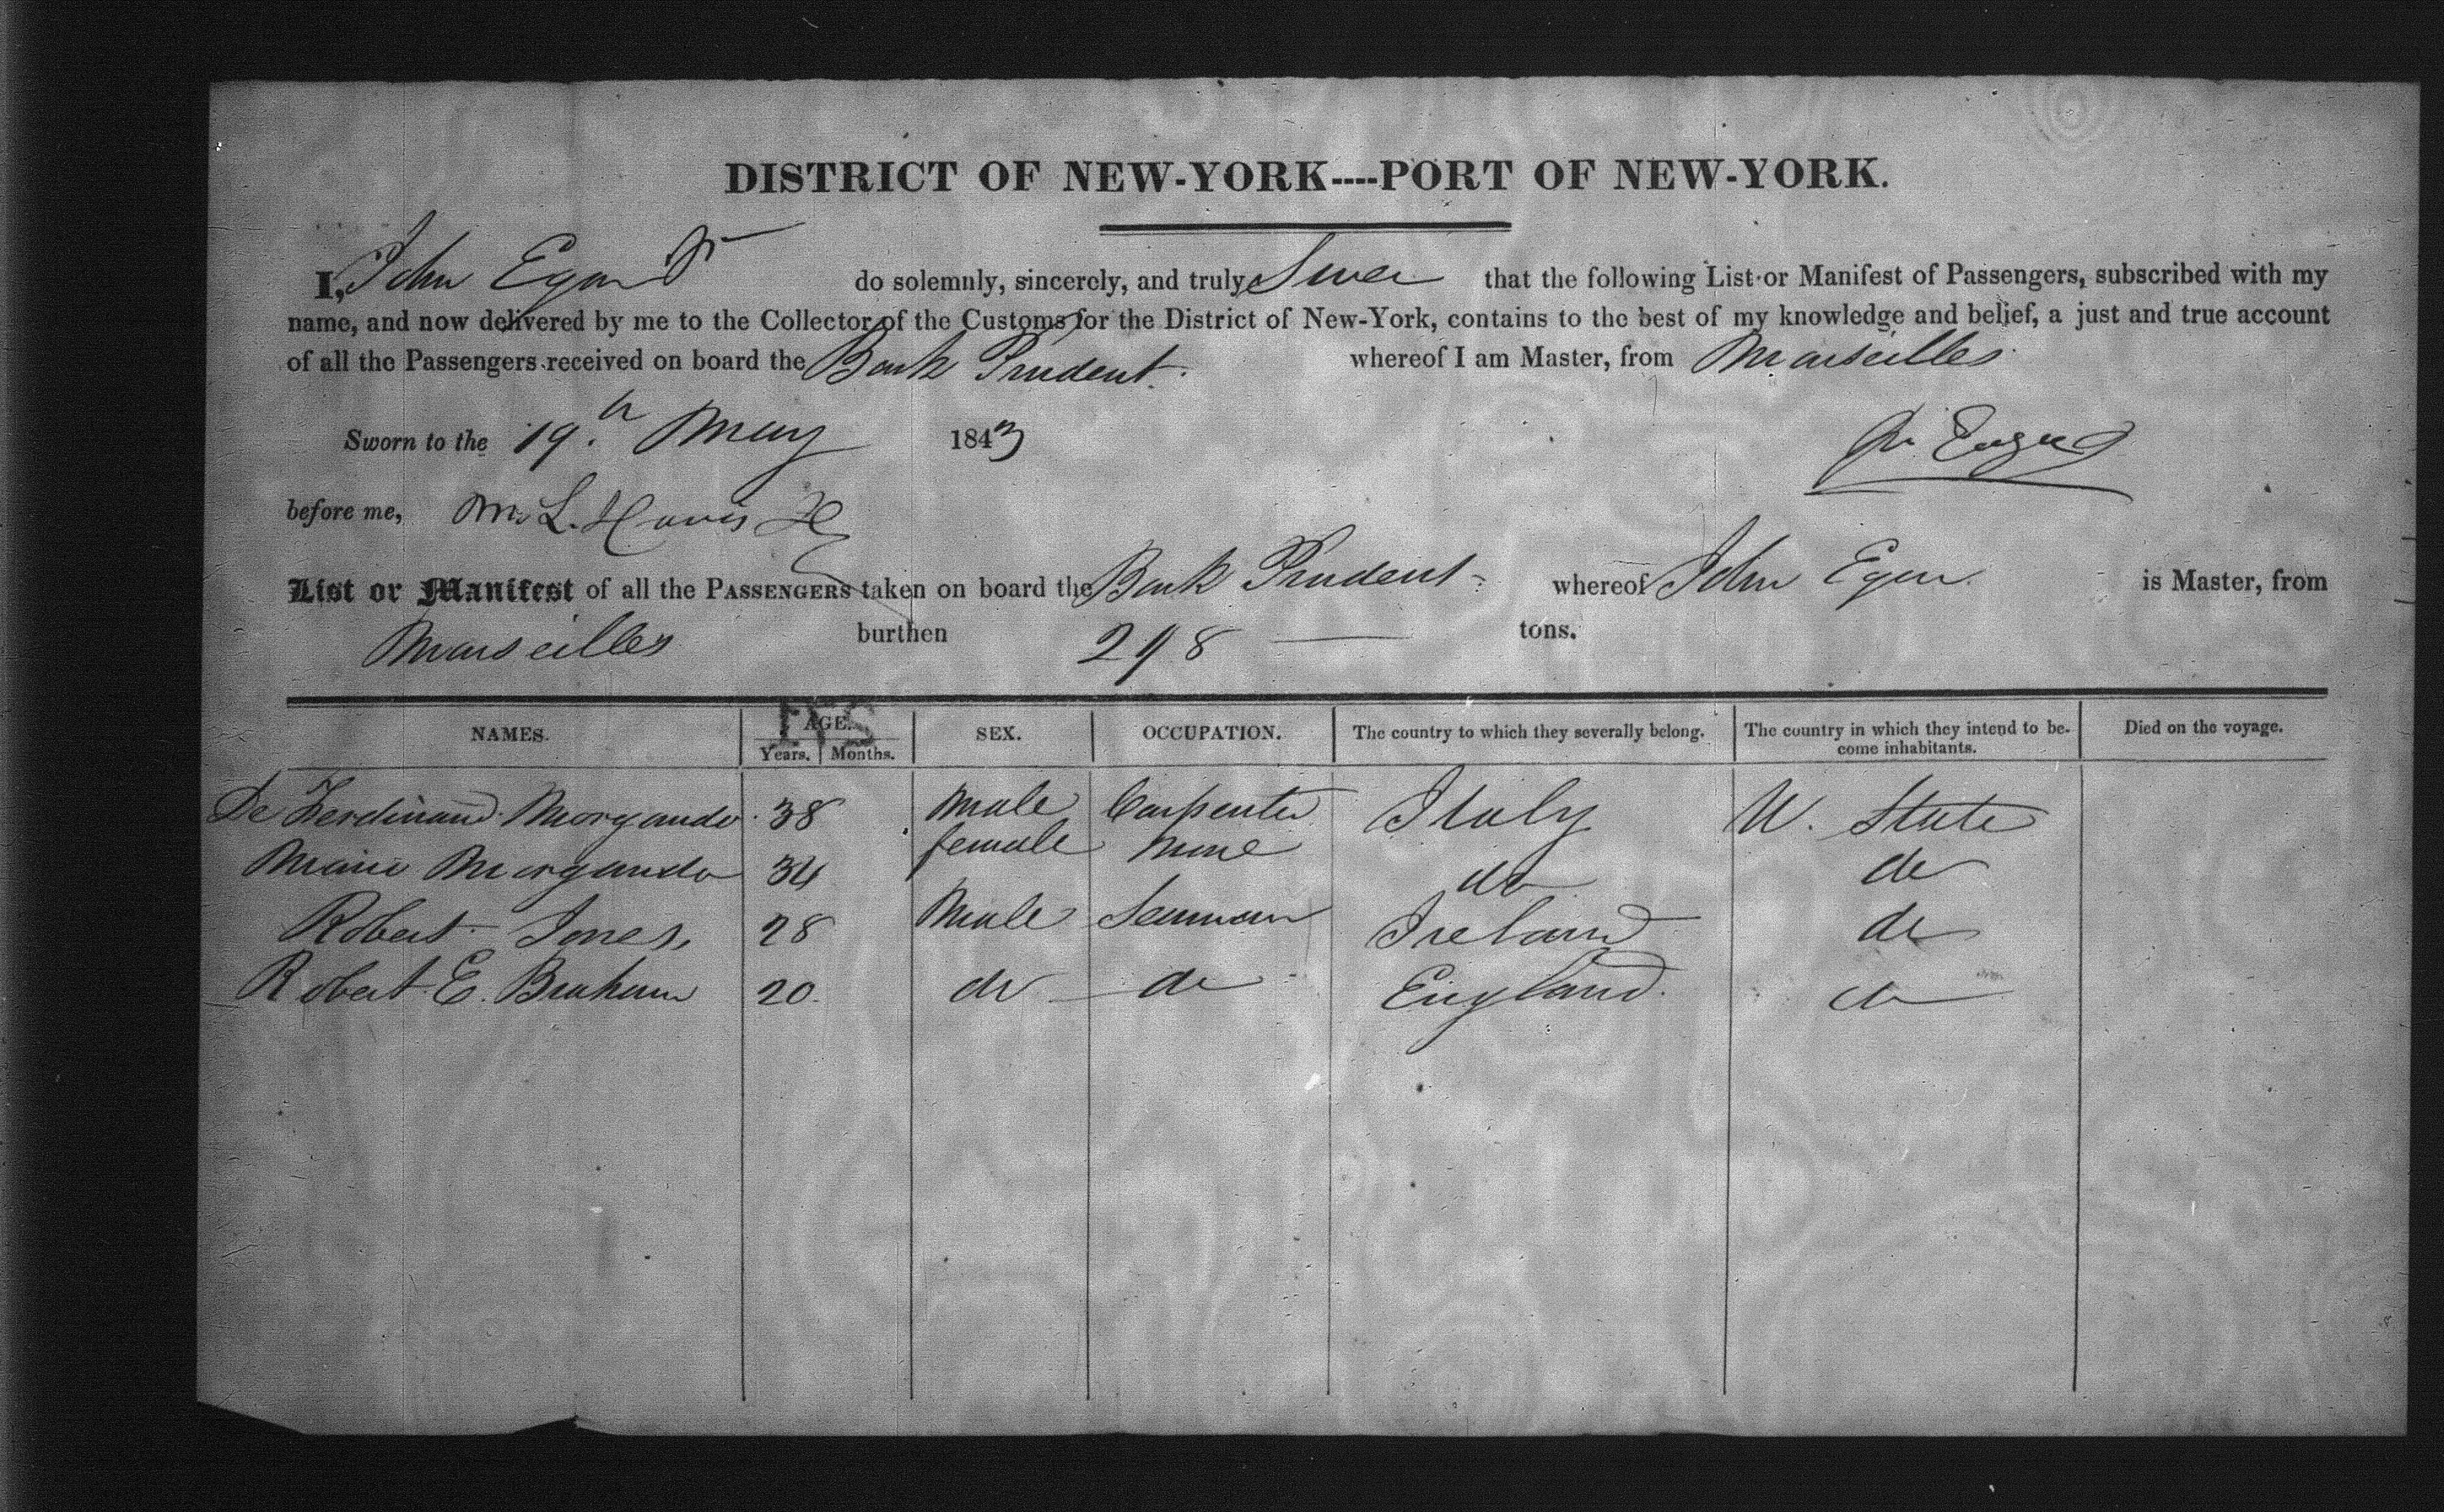 DISTRICT OF NEW-YORK----PORT OF NEW-YORK.
I, John Egan do solemnly, sincerely, and truly Swear that the following List or Manifest of Passengers, subscribed with my
name, and now delivered by me to the Collector of the Customs for the District of New-York, contains to the best of my knowledge and belief, a just and true account
of all the Passengers received on board the Bark Prudent. whereof I am Master, from Marseilles
Sworn to the 19.th May 1843
before me,
List or Manifest of all the PASSENGERS taken on board the Bark Prudent whereof John Egan is Master, from
Marseilles burthen 298 tons.
NAMES. AGE. SEX. OCCUPATION. The country to which they severally belong. The country in which they intend to be- Died on the voyage.
Years. Months. come inhabitants.
De Ferdinand Morgando 38 Male Carpenter Italy U. State
Marie Morgando 34 female None do do
Robert Jones 28 Male Seaman Ireland do
Robert E. Braham 20 do do England do